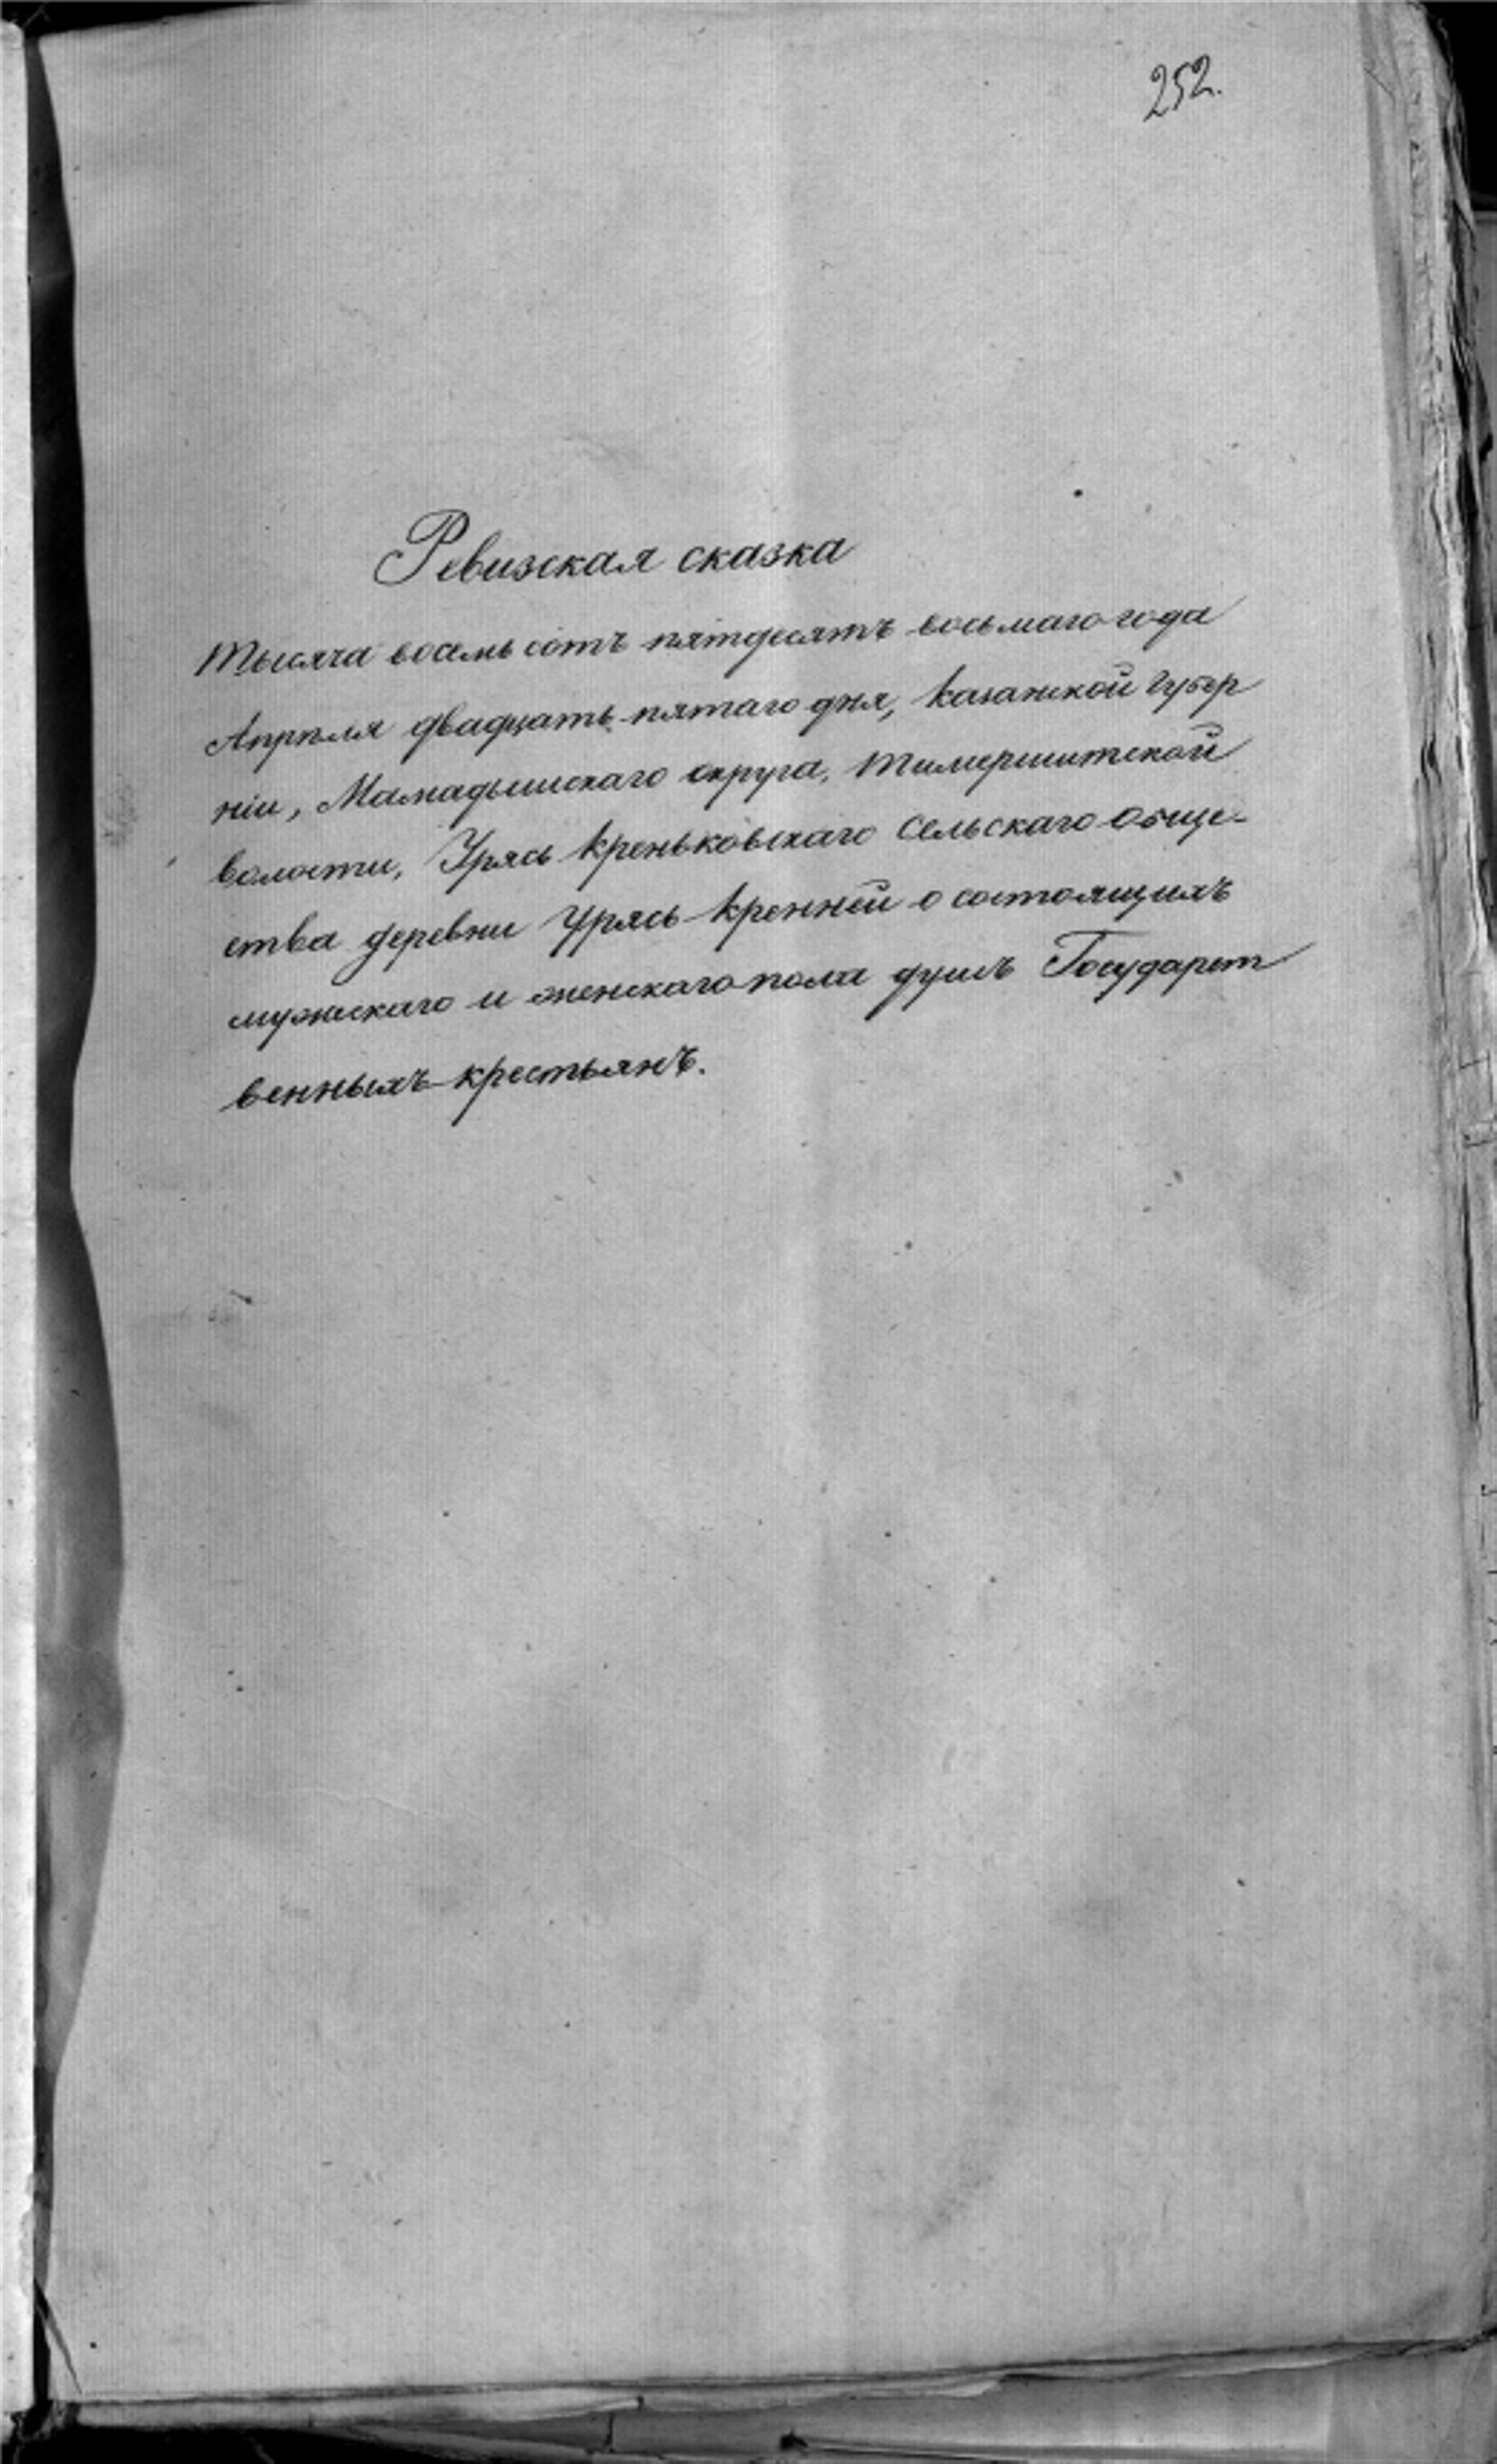 252.
Ревизская сказка
Тысяча восемь сотъ пятдесятъ восьмаго года
Апрѣля двадцать пятаго дня, Казанской Губер
ніи, Мамадышскаго округа, Тимершитской
волости, Урясь Креньковскаго Сельскаго Обще-
ства деревни Урясь Кренней о состоящихъ
мужескаго и женскаго пола душъ Государст
венныхъ крестьянъ.